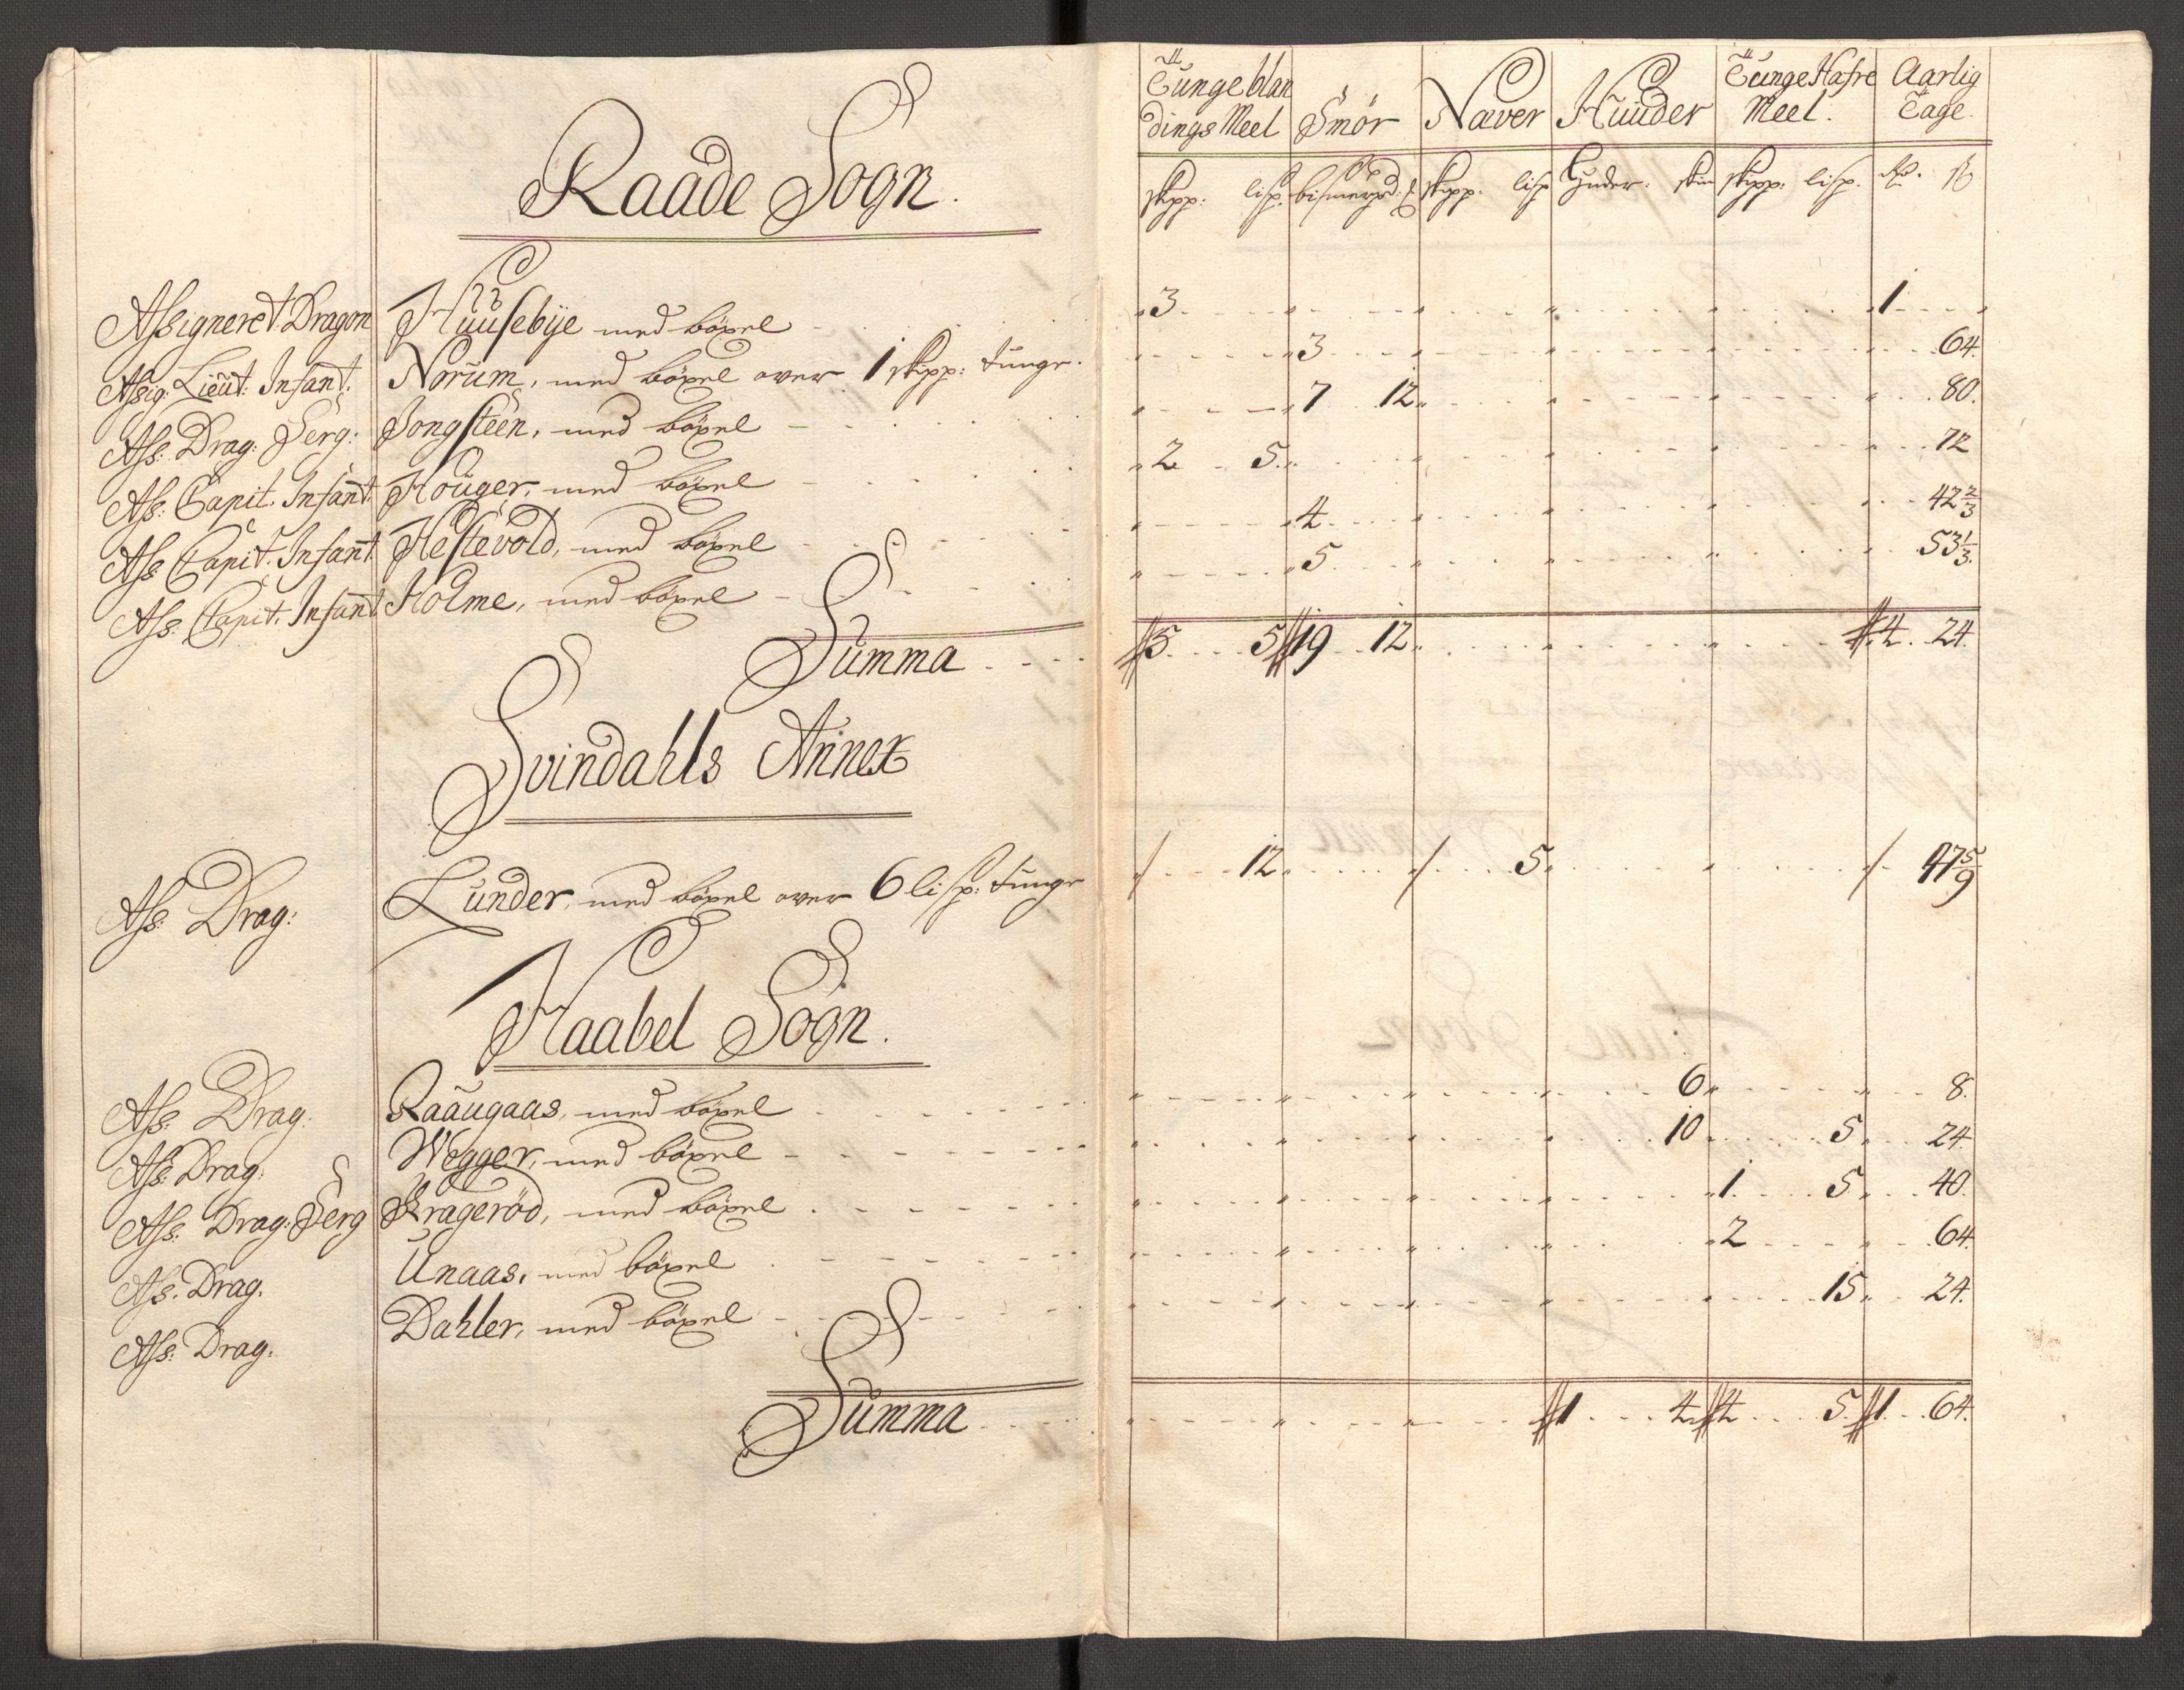 Tunge blan Tunge Hafre Aarlig
dings Meel Smör Næver Huuder Meel. Tage.
skpp: lisp. bismerpd. skpp: lisp huder. skin skpp: lisp. Rd.
Raade Sogn.
Assigneret Dragon Huusebÿe med böxel 3 1
Assig: Lieut: Infant. Norum, med böxel over 1 skpp: tunge. 3 64.
Ass: Drag: Serg: Jongsteen, med böxel 7 12 80.
Ass: Capit. Infant. Houger, med böxel 2 5 72
Ass: Capit. Infant Hestevold, med böxel 4 42 2/3
Ass. Capit. Infant Holme, med böxel 5 53 1/3.
Summa 5 5 19 12 4 24.
Svindahls Annex
Ass. Drag: Lunder, med böxel over 6 lisp: tunge 12 5 47 5/9
Haabel Sogn.
Ass: Drag. Raaugaas, med böxel 6 8.
Ass: Drag: Wegger, med böxel 10 5 24
Ass. Drag: Serg Kragerød, med böxel 1 5 40.
Ass. Drag. Unaas, med böxel 2 64.
Ass: Drag. Dahler, med böxel 15 24.
Summa 1 4 4 5 1 64.